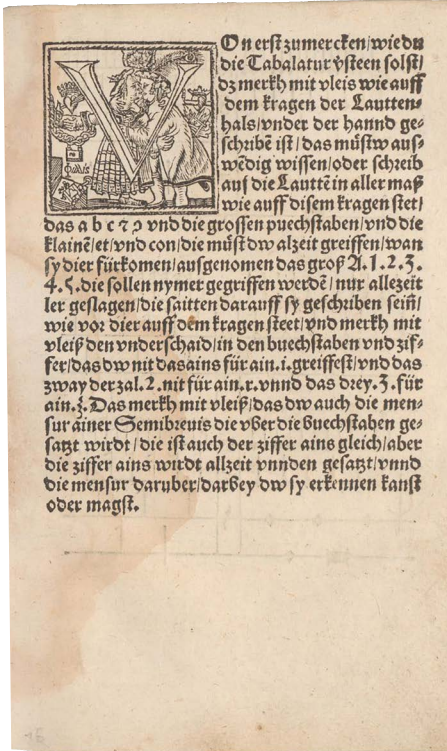 VOn erst zumercken/wie du
die Tabalatur vsteen solst/
dz merkh mit vleis wie auff
dem kragen der Lautten-
hals/vnder der hannd ge-
schribē ist/das můstw aus-
wēdig wissen/oder schreib
auf die Lauttē in aller maß
wie auff disem kragen stet/
das a b c ⁊ ꝯ vnd die grossen puechstaben/vnd die
klainē/et/vnd con/die můst dw alzeit greiffen/wan
sy dier fürkomen/ausgenomen das groß A.1.2.3.
4.5.die sollen nymer gegriffen werdē/nur allezeit
ler geslagen/die saitten darauff sy geschriben sein/
wie vor dier auff dem kragen steet/vnd merkh mit
vleiß den vnderschaid/in den buechstaben vnd zif-
fer/das dw nit das ains für ain.i.greiffest/vnd das
zway der zal.2.nit für ain.r.vnnd das drey.3.für
ain.z.Das merkh mit vleiß/das dw auch die men-
sur ainer Semibreuis die vber die buechstaben ge-
satzt wirdt/die ist auch der ziffer ains gleich/aber
die ziffer ains wirdt allzeit vnnden gesatzt/vnnd
die mensur daruber/darbey dw sy erkennen kanst
oder magst.
16